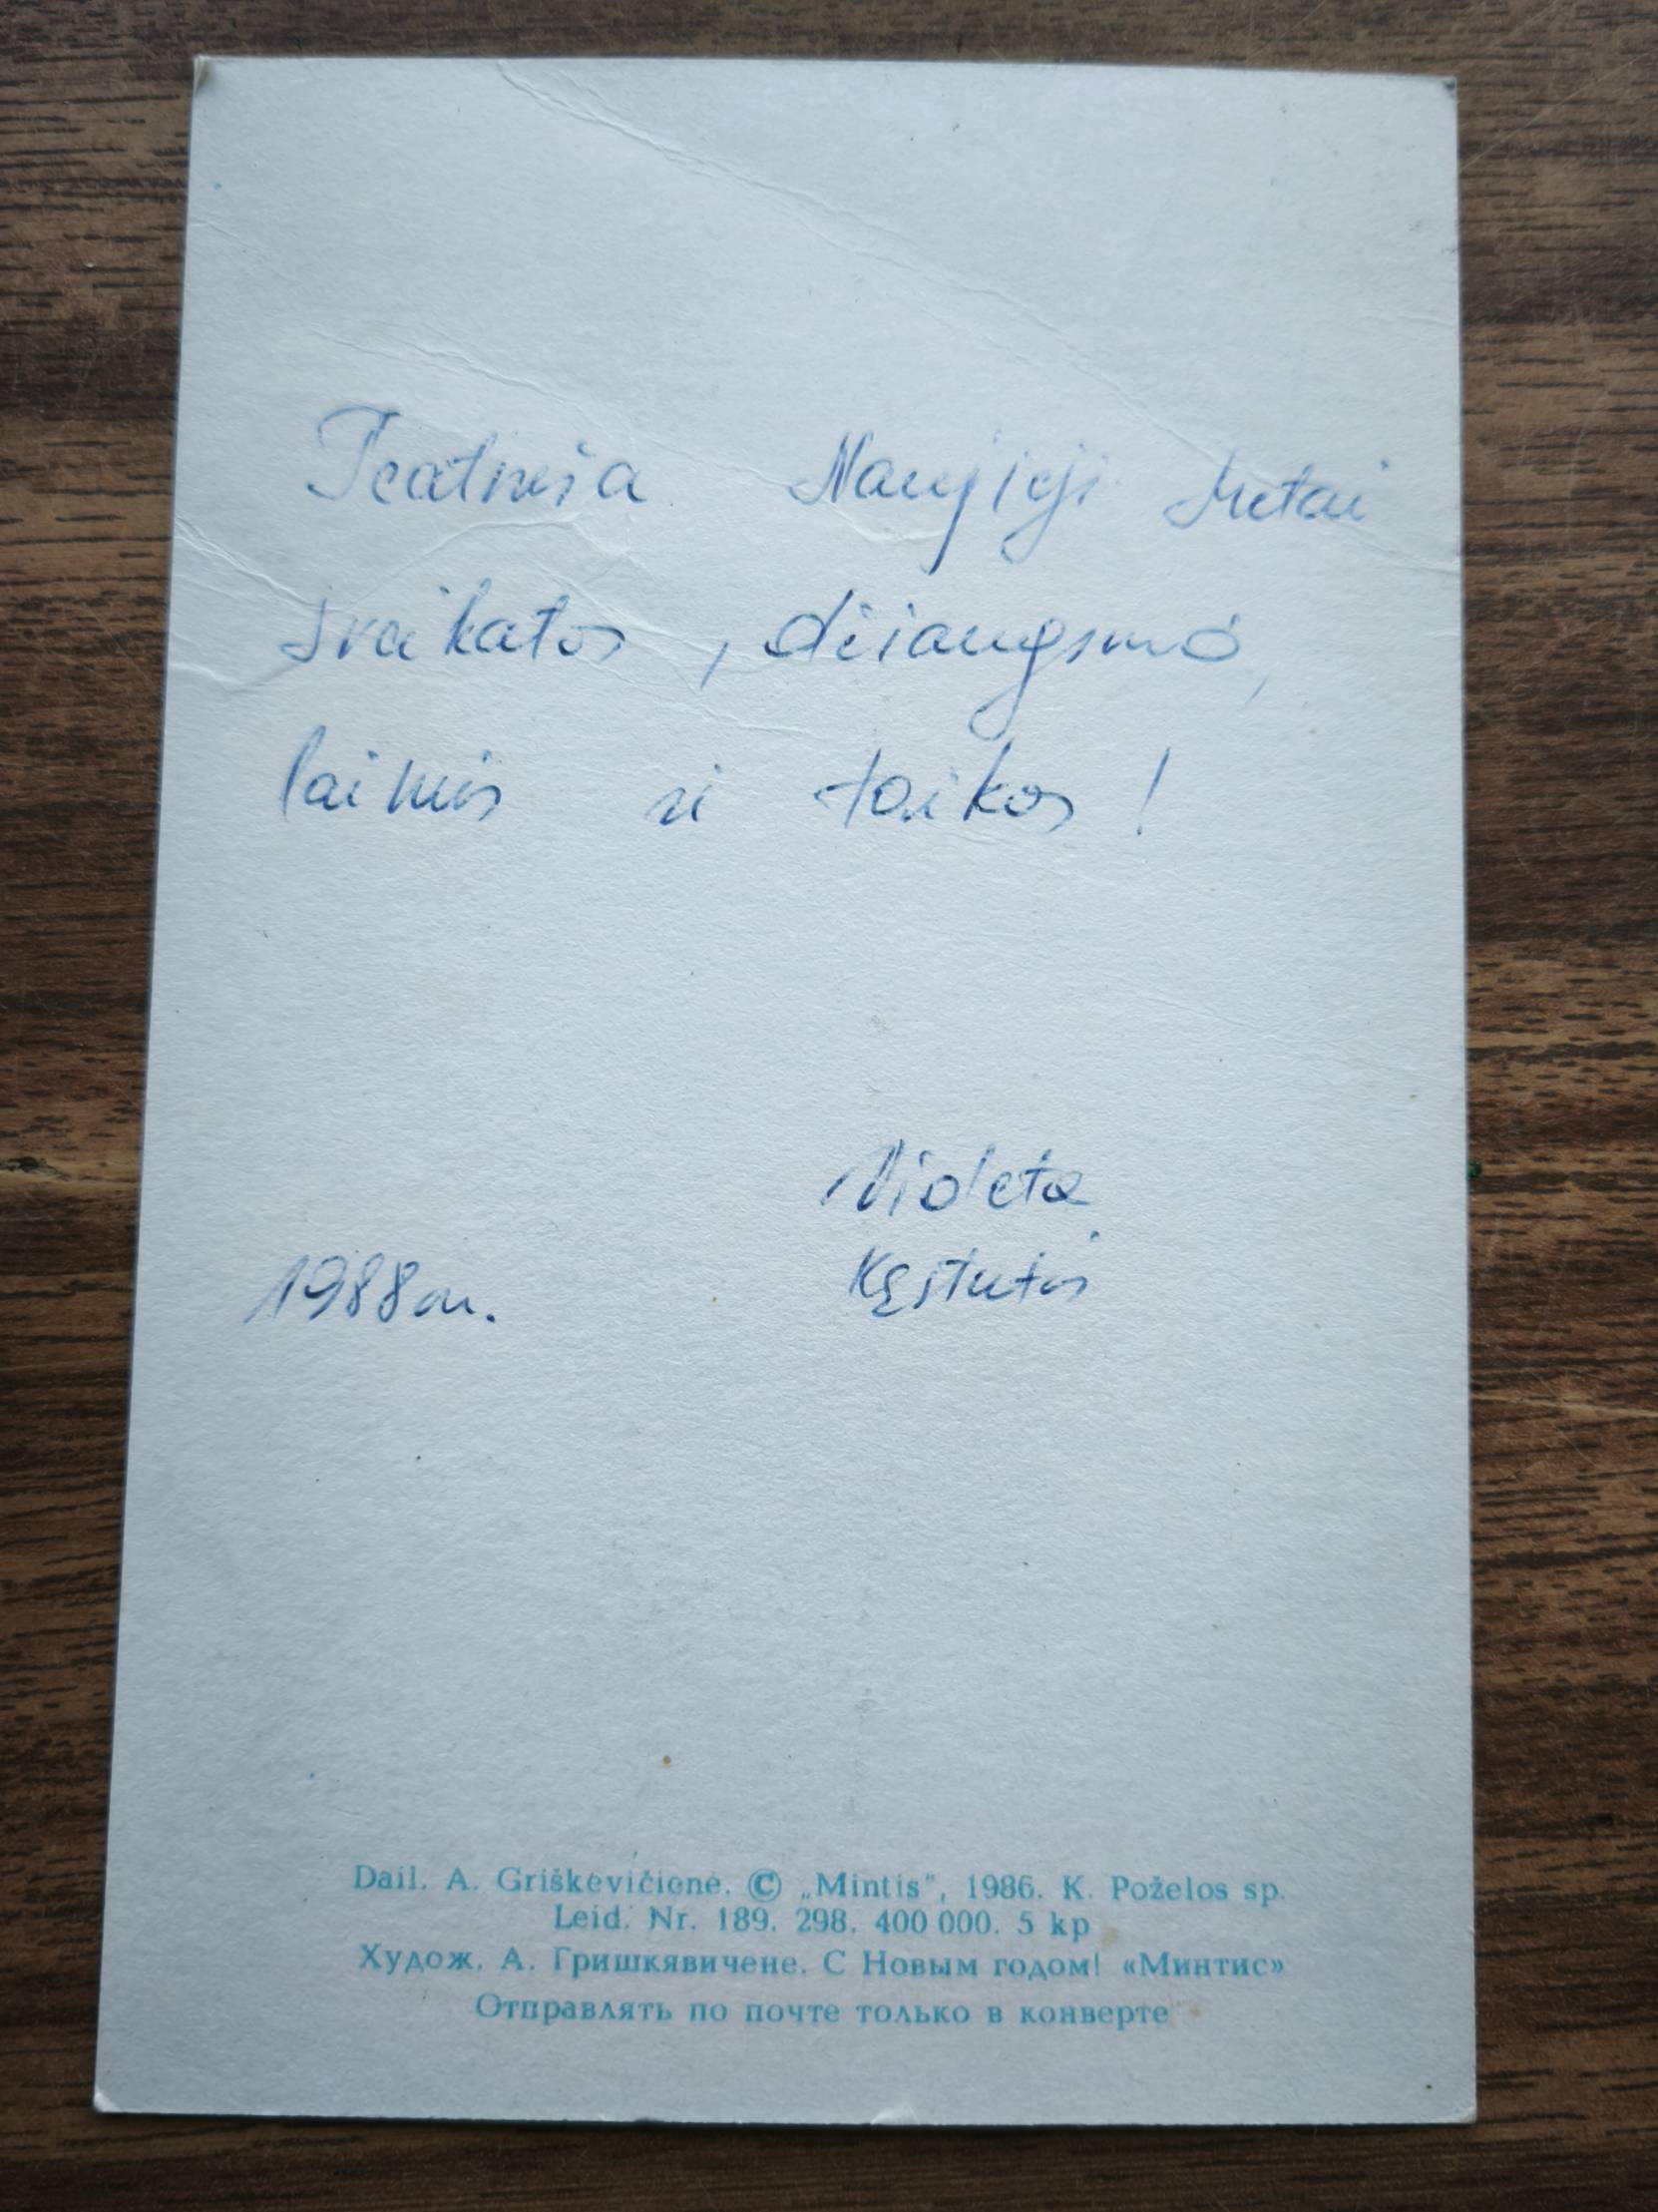 Teatneša Naujieji Metai
sveikatos, džiaugsmo,
laimės ir taikos!
Violeta
Kęstutis
1988 m.
Dail. A. Griškevičienė. © „Mintis“, 1986. K. Poželos sp.
Leid. Nr. 189. 298. 400 000. 5 kp
Худож. А. Гришкявичене. С Новым годом! «Минтис»
Отправлять по почте только в конверте